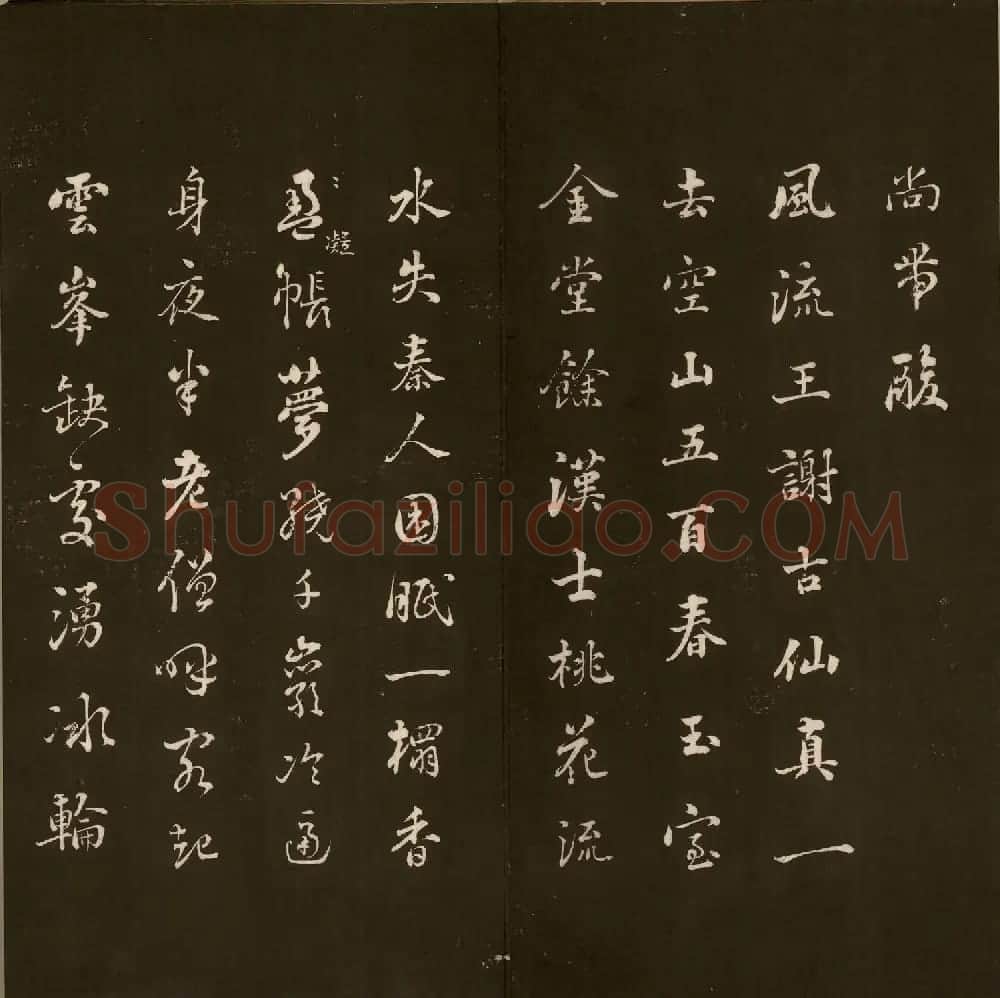 尚帶酸
風流王謝古仙真一
去空山五百春玉室
金堂餘漢士桃花流
水失秦人困眠一榻香
凝帳夢繞千巖冷逼
身夜半老僧呼客起
雲峯缺處湧冰輪
Shufaziliao.COM